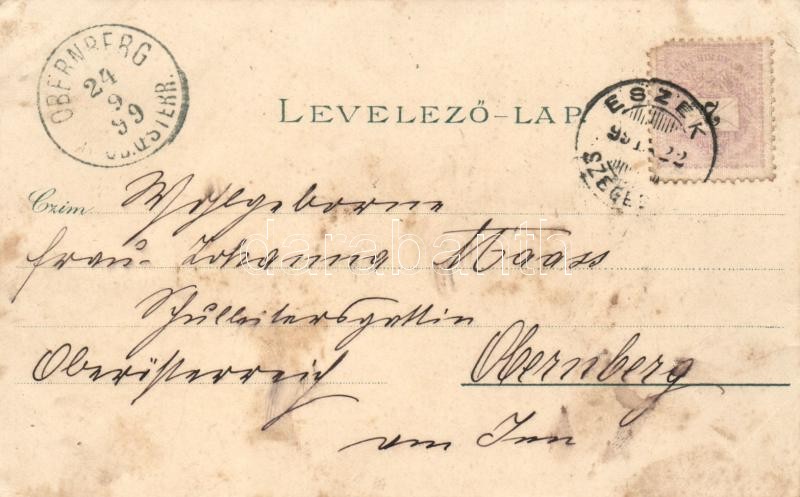 OBERNBERG
24
9
99
OB.ÖSTERR.
LEVELEZŐ-LAP.
ESZÉK
22
SZEGED
Czím
Wohlgeborne
Frau Johanna Maass
Schulleitersgattin
Oberösterreich Obernberg
am Inn
darabanth